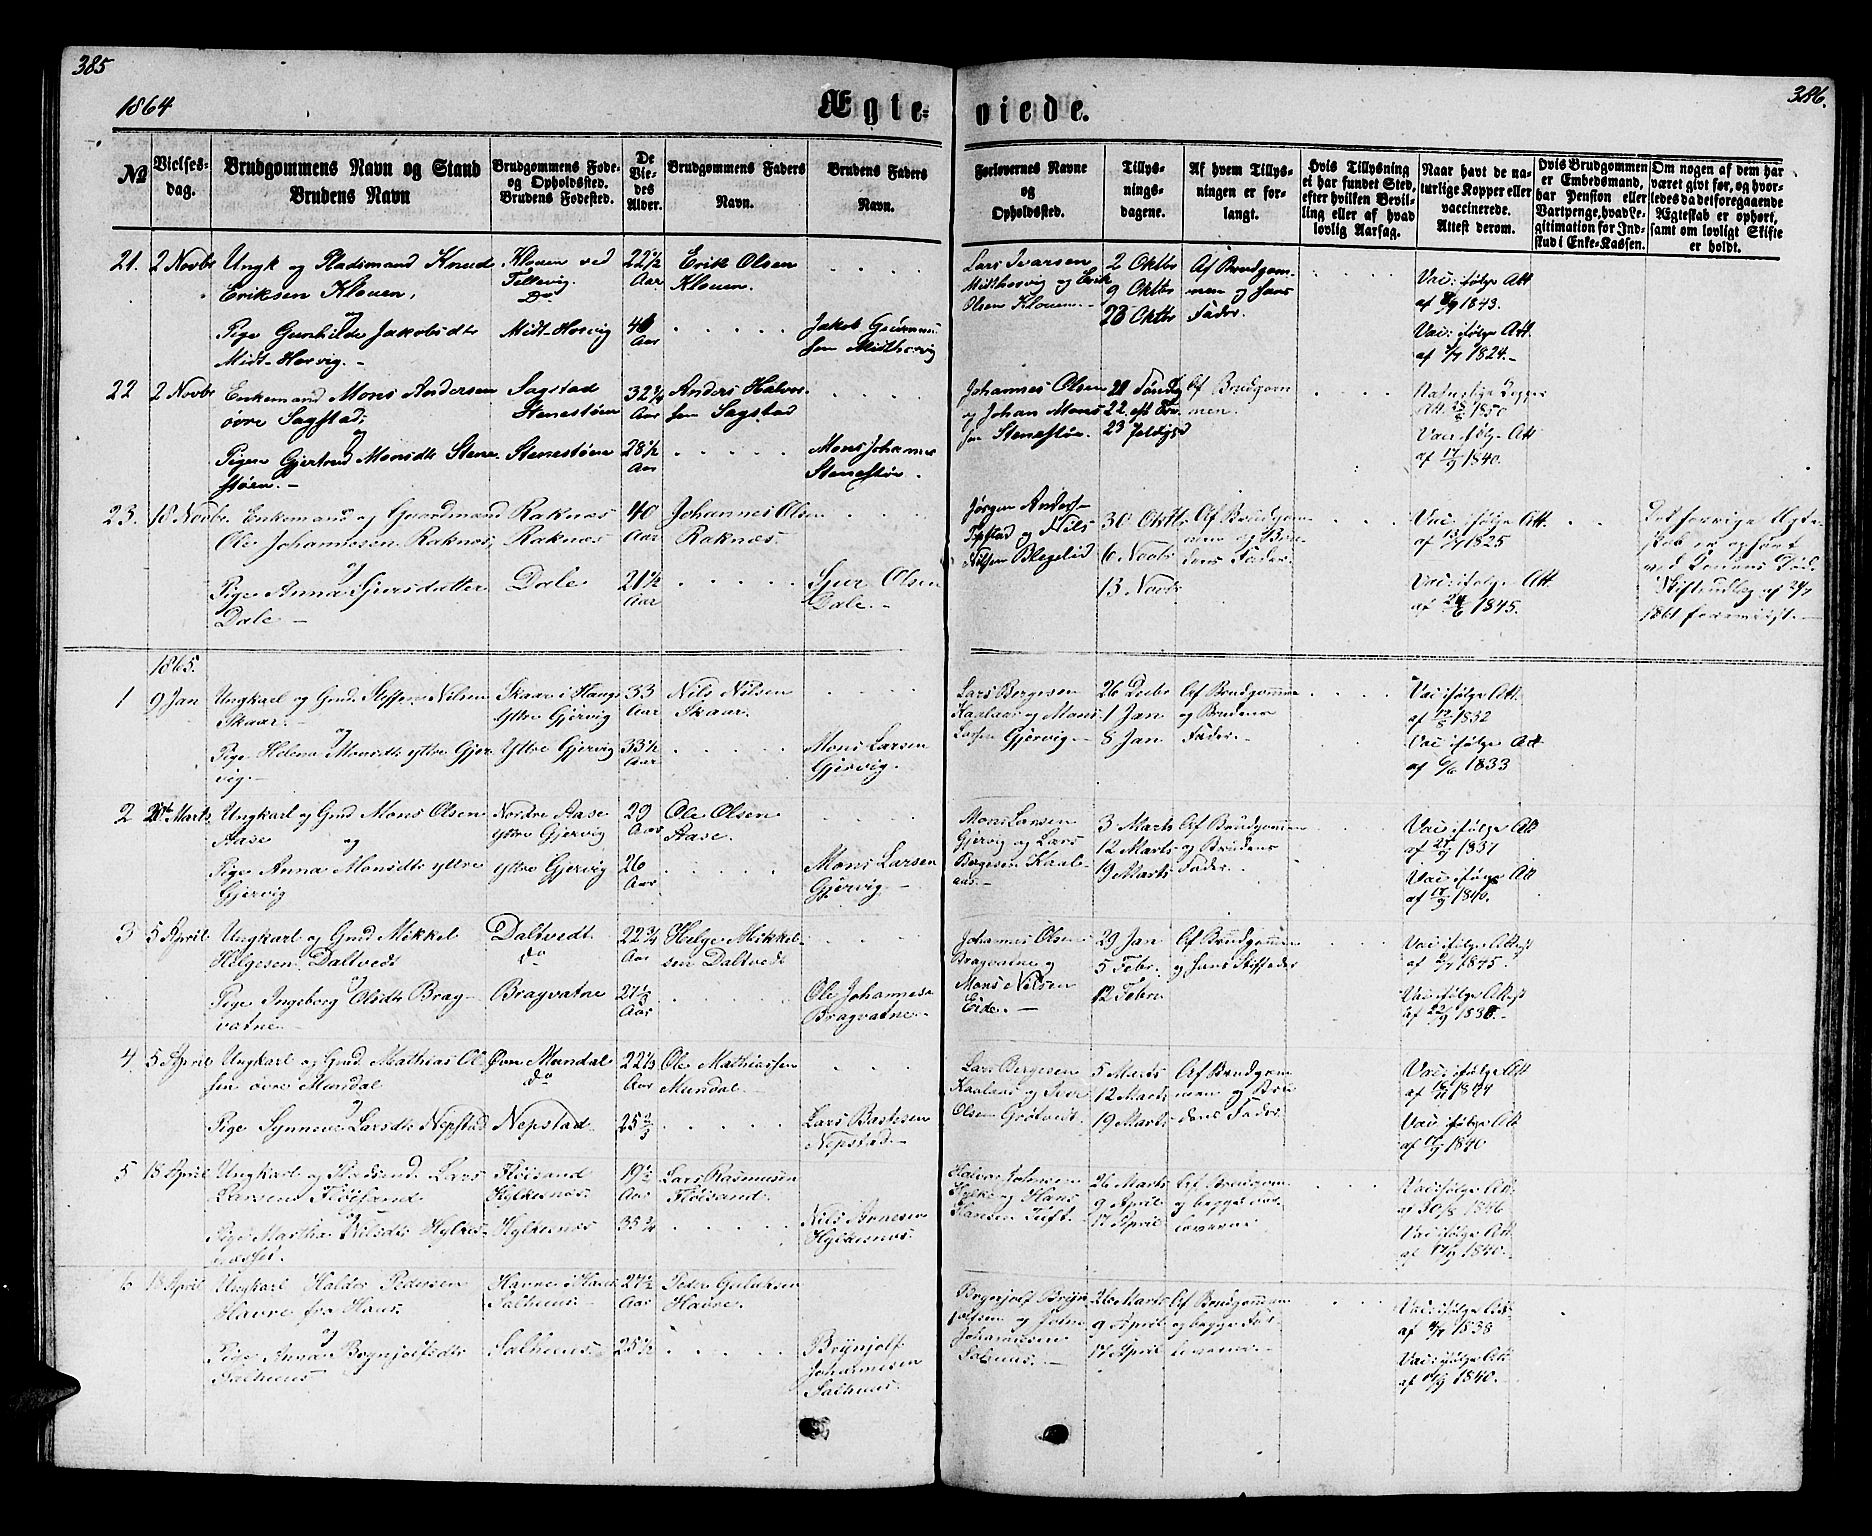 385
1864
Ægte-
viede.
386.
No
Vielses-
dag.
Brudgommens Navn og Stand
Brudens Navn
Brudgommens Føde-
og Opholdssted.
Brudens Fødested.
De
Vie-
des
Alder.
Brudgommens Faders
Navn.
Brudens Faders
Navn.
Forlovernes Navne
og
Opholdssted.
Tillys-
nings-
dagene.
Af hvem Tillys-
ningen er for-
langt.
Hvis Tillysning
ei har fundet Sted,
efter hvilken Bevil-
ling eller af hvad
lovlig Aarsag.
Naar havt de na-
turlige Kopper eller
vaccinerede.
Attest derom.
Hvis Brudgommen
er Embedsmand,
har Pension eller
Vartpenge, hvad Le-
gitimation for Ind-
skud i Enke-Kassen.
Om nogen af dem har
været givt før, og hvor-
ledes da det foregaaende
Ægteskab er ophørt,
samt om lovligt Skifte
er holdt.
21.
2 Novbr
Ungk og Pladsmand Knud
Eriksen Klouen,
og
Pige Gunhilde Jakobsdtr
Midt-Horvig. -
Klouen ved
Do
Midt-Horvig
22 1/2
Aar
Aar
Erik Olsen
Klouen.
Jakob
sen Midthorvig
Lars Ivarsen
Midthorvig og Erik
Olsen Klouen. -
2 Oktbr
9 Oktbr
23 Oktbr
Af Brudgom-
men og hans
Fader.
Vac: ifølge Att
af 8/9 1843.
Vac: ifølge Att.
1824. -
22
2 Novbr
Enkemand Mons Andersen
øvre Sagstad;
og
Pigen Gjertrud Monsdtr Stene-
støen. -
Sagstad
Stenestøen
Stenestøen
32 3/4
Aar
28 1/2
Aar
Anders Halvor-
sen Sagstad
Mons Johannes
Stenestøe.
Johannes Olsen
og Johan Mons-
sen Stenestøe.
21 Søndg
22 eft Tre-
23
Af Brudgom
men.
Naturlige Kopper
1850
Vac: ifølge Att
af 17/9 1840.
23.
18 Novbr.
Enkemand og Gaardmand
Ole Johannesen Raknes,
og
Pige Anna Sjursdatter
Dale. -
Raknes
Raknes
Dale
40
Aar
21 1/2
Aar
Johannes Olsen
Raknes
Sjur Olsen
Dale. -
Jørgen Anders-
og Nils
Nilsen
30 Oktbr
6 Novbr
13 Novbr
Af Brudgom-
men og Bru-
dens Fader.
Vac: ifølge Att.
1825
Vac: ifølge Att.
af 24/6 1845.
Det forrige Ægte-
skab er ophørt
ved Konens Død.
1861 foreviist. -
1865.
1
9 Jan
Ungkarl og Gmd. Steffen Nilsen
Skaar. -
og
Pige Helena Monsdtr yttre Gjer-
vig. -
Skaar i Haug
Yttre Gjervig
Yttre Gjervig
33
Aar
33 1/2
Aar
Nils Nilsen
Skaar.
Mons Larsen
Gjervig.
Lars Bergesen
Kaalaas og Mons
Larsen Gjervig. -
26 Decbr
1 Jan
8 Jan
Af Brudgommen
og Brudens
Fader. -
Vac: ifølge Att.
1832
Vac: ifølge Att
1833
2
Marts
Ungkarl og Gmd Mons Olsen
Aase
og
Pige Anna Monsdtr yttre
Gjervig
Nordre Aase
Yttre Gjervig
Yttre Gjervig
29
Aar
26
Aar
Ole Olsen
Aase.
Mons Larsen
Gjervig. -
Mons Larsen
Gjervig og Lars
Bergesen Kaal-
aas. -
3 Marts
12 Marts
19 Marts
Af Brudgommen
og Brudens
Fader.
Vac: ifølge Att
1837
Vac: ifølge Att
af 17/9 1840.
3
5 April
Ungkarl og Gmd Mikkel
Helgesen Daltvedt
og
Pige Ingeborg Olsdtr Brag-
vatne. -
Daltvedt
do
Bragvatne
22 3/4
Aar
Aar
Helge Mikkel-
sen Daltvedt
Ole Johannesen
Bragvatne. -
Johannes Olsen
Bragvatne og
Mons Nilsen
Eide. -
29 Jan
5 Febr.
12 Febr
Af Brudgommen
og hans Stiffader
Vac: ifølge Attest
1845.
Vac: ifølge Attest
4.
5 April
Ungkarl og Gmd. Mathias Ol-
sen øvre Mundal
og
Pige Synneve Larsdtr Nepstad
Øvre Mundal
do
Nepstad.
22 1/3
Aar
25 2/3
Ole Mathiassen
Mundal. -
Lars Bastesen
Nepstad. -
Lars Bergesen
Kaalaas og Iver
Olsen
5 Marts
12 Marts
19 Marts
Af Brudgom
men og Bru
dens Fader.
Vac: ifølge Att
1844
Vac: ifølge Att
1840
5
18 April
Ungkarl og Pladsmd. Lars
Larsen Fløisand
og
Pige Martha Nilsdtr Hylkes-
næsset.
Fløisand
Hylkesnæs.
Hylkesnæs
19 1/2
Aar
35 3/4
Lars Rasmusen
Fløisand.
Nils Arnesen
Hylkesnæs.
Hylke og Hans
Hansen Tuft.
26 Marts
9 April
17 April
Af Brudgom-
og begge For-
loverne.
Vac: ifølge Att.
1846
Vac: ifølge Att
1840.
6
18 April
Ungkarl Haldor Pedersen
Havre fra Haus.
og
Pige Anna Brynjolfsdtr
Salhuus.
Havre i Haus
Salhuus. -
Salhuus.
Aar
25 1/2
Peder
Havre.
Brynjolf
Johannesen
Salhuus.
Brynjolf Bryn-
jolfsen og John
Johannesen
Salhuus. -
26 Marts
9 April
17 April
Af Brudgommen
og begge For-
loverne. -
Vac: ifølge Att.
1838
Vac: ifølge Att
1840.